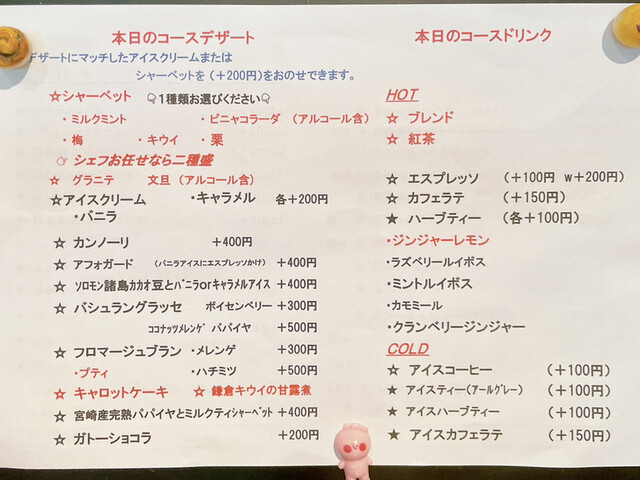 本日のコースデザート
デザートにマッチしたアイスクリームまたは
シャーベットを（＋200円）をおのせできます。
☆シャーベット 👇1種類お選びください👇
・ミルクミント ・ピニャコラーダ （アルコール含）
・梅 ・キウイ ・栗
☞ シェフお任せなら二種盛
☆ グラニテ 文旦 （アルコール含）
☆アイスクリーム ・キャラメル 各＋200円
・バニラ
☆ カンノーリ ＋400円
☆ アフォガード （バニラアイスにエスプレッソかけ） ＋400円
☆ ソロモン諸島カカオ豆とバニラorキャラメルアイス ＋400円
☆ バシュラングラッセ ボイセンベリー ＋300円
ココナッツメレンゲ パパイヤ ＋500円
☆ フロマージュブラン ・メレンゲ ＋300円
・プティ ・ハチミツ ＋500円
☆ キャロットケーキ ☆ 鎌倉キウイの甘露煮
☆ 宮崎産完熟パパイヤとミルクティシャーベット ＋400円
☆ ガトーショコラ ＋200円
本日のコースドリンク
HOT
☆ ブレンド
☆ 紅茶
★ エスプレッソ （＋100円 w＋200円）
☆ カフェラテ （＋150円）
★ ハーブティー （各＋100円）
・ジンジャーレモン
・ラズベリールイボス
・ミントルイボス
・カモミール
・クランベリージンジャー
COLD
☆ アイスコーヒー （＋100円）
★ アイスティー（アールグレー） （＋100円）
★ アイスハーブティー （＋100円）
★ アイスカフェラテ （＋150円）